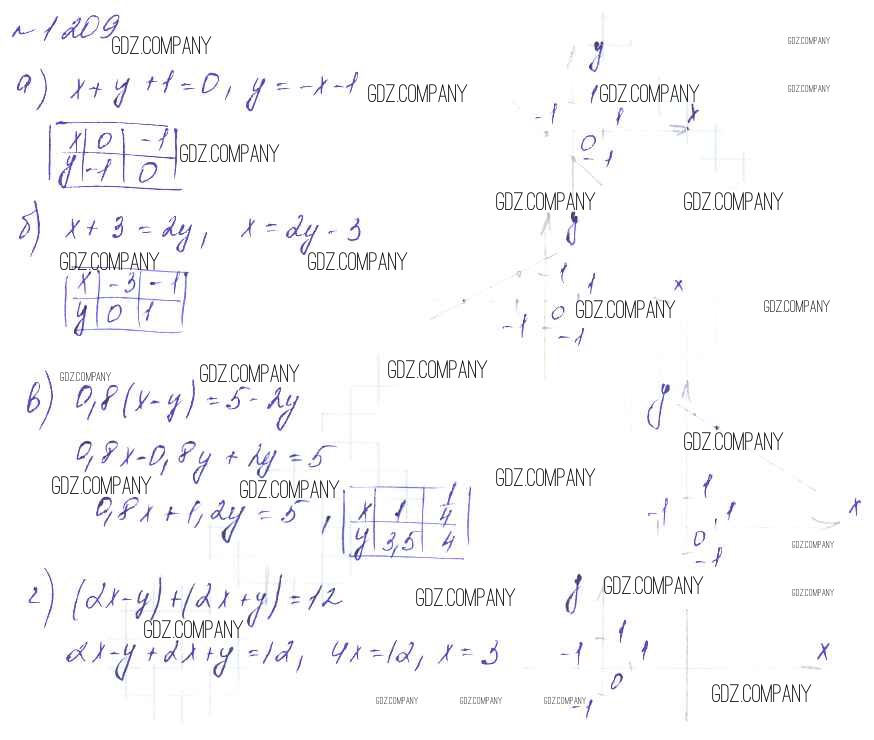 №1209
GDZ.COMPANY
GDZ.COMPANY
y
а) x + y + 1 = 0, y = -x - 1
GDZ.COMPANY
1
GDZ.COMPANY
GDZ.COMPANY
-1
1
x
x 0 -1
GDZ.COMPANY
0
y -1 0
-1
GDZ.COMPANY
GDZ.COMPANY
б) x + 3 = 2y, x = 2y - 3
y
GDZ.COMPANY
GDZ.COMPANY
x -3 -1
1
1
x
y 0 1
0
GDZ.COMPANY
GDZ.COMPANY
-1
-1
GDZ.COMPANY
GDZ.COMPANY
GDZ.COMPANY
в) 0,8(x-y) = 5 - 2y
y
GDZ.COMPANY
0,8x-0,8y + 2y = 5
GDZ.COMPANY
GDZ.COMPANY
GDZ.COMPANY
1
0,8x + 1,2y = 5,
x 1 1/4
-1
1
x
y 3,5 4
0
GDZ.COMPANY
-1
г) (2x-y)+(2x+y)=12
GDZ.COMPANY
y
GDZ.COMPANY
GDZ.COMPANY
GDZ.COMPANY
1
2x-y+2x+y=12, 4x=12, x=3
-1
1
x
0
GDZ.COMPANY
GDZ.COMPANY
GDZ.COMPANY
GDZ.COMPANY
-1